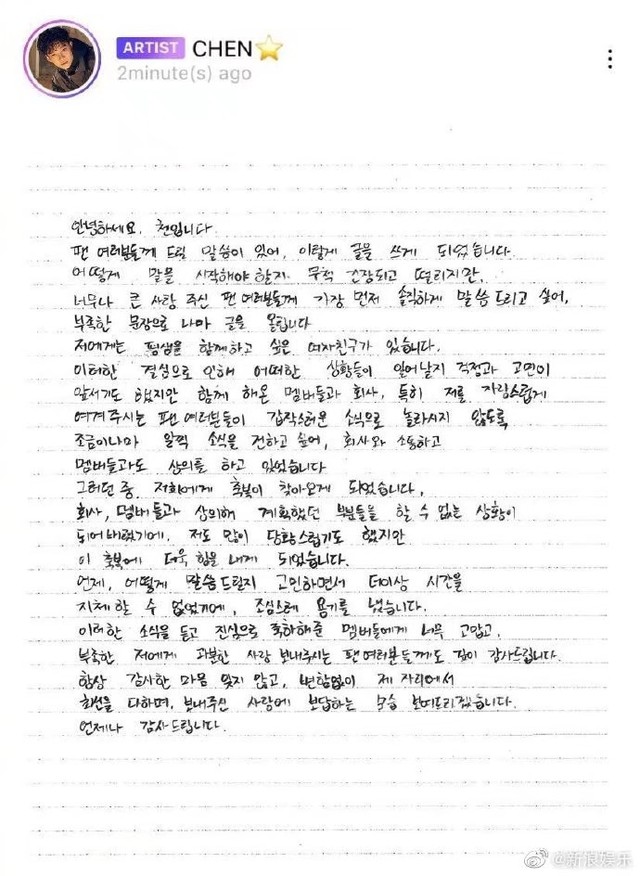 ARTIST CHEN⭐
2minute(s) ago
안녕하세요, 첸입니다
팬 여러분들께 드릴 말씀이 있어, 이렇게 글을 쓰게 되었습니다
어떻게 말을 시작해야 할지 무척 긴장되고 떨리지만,
너무나 큰 사랑 주신 팬 여러분들께 가장 먼저 솔직하게 말씀드리고 싶어,
부족한 문장으로 나마 글을 올립니다
저에게는 평생을 함께하고 싶은 여자친구가 있습니다.
이러한 결심으로 인해 어떠한 상황들이 일어날지 걱정과 고민이
앞서기도 했지만 함께 해온 멤버들과 회사, 특히 저를 자랑스럽게
여겨주시는 팬 여러분들이 갑작스러운 소식으로 놀라시지 않도록
조금이나마 일찍 소식을 전하고 싶어, 회사와 소통하고
멤버들과도 상의를 하고 있었습니다
그러던 중, 저희에게 축복이 찾아오게 되었습니다,
회사, 멤버들과 상의해 계획했던 부분들을 할 수 없는 상황이
되어버렸기에, 저도 많이 당황스럽기도 했지만
이 축복에 더욱 힘을 내게 되었습니다.
언제, 어떻게 말씀드릴지 고민하면서 더이상 시간을
지체할 수 없었기에, 조심스레 용기를 냈습니다.
이러한 소식을 듣고 진심으로 축하해준 멤버들에게 너무 고맙고,
부족한 저에게 과분한 사랑 보내주시는 팬 여러분들께도 깊이 감사드립니다.
항상 감사한 마음 잊지 않고, 변함없이 제 자리에서
최선을 다하며, 보내주신 사랑에 보답하는 모습 보여드리겠습니다.
언제나 감사드립니다.
@新浪娱乐